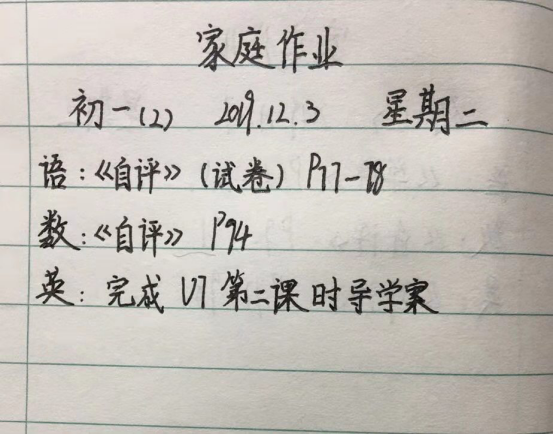 家庭作业
初一(2) 2019.12.3 星期二
语:《自评》(试卷) P77-78
数:《自评》 P94
英:完成 U7 第二课时导学案